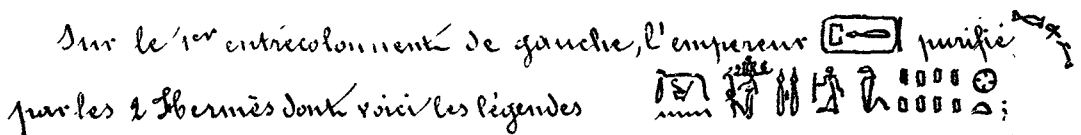 Sur le 1er entrecolonnent de gauche, l'empereur purifié
par les 2 Hermès dont voici les légendes ;